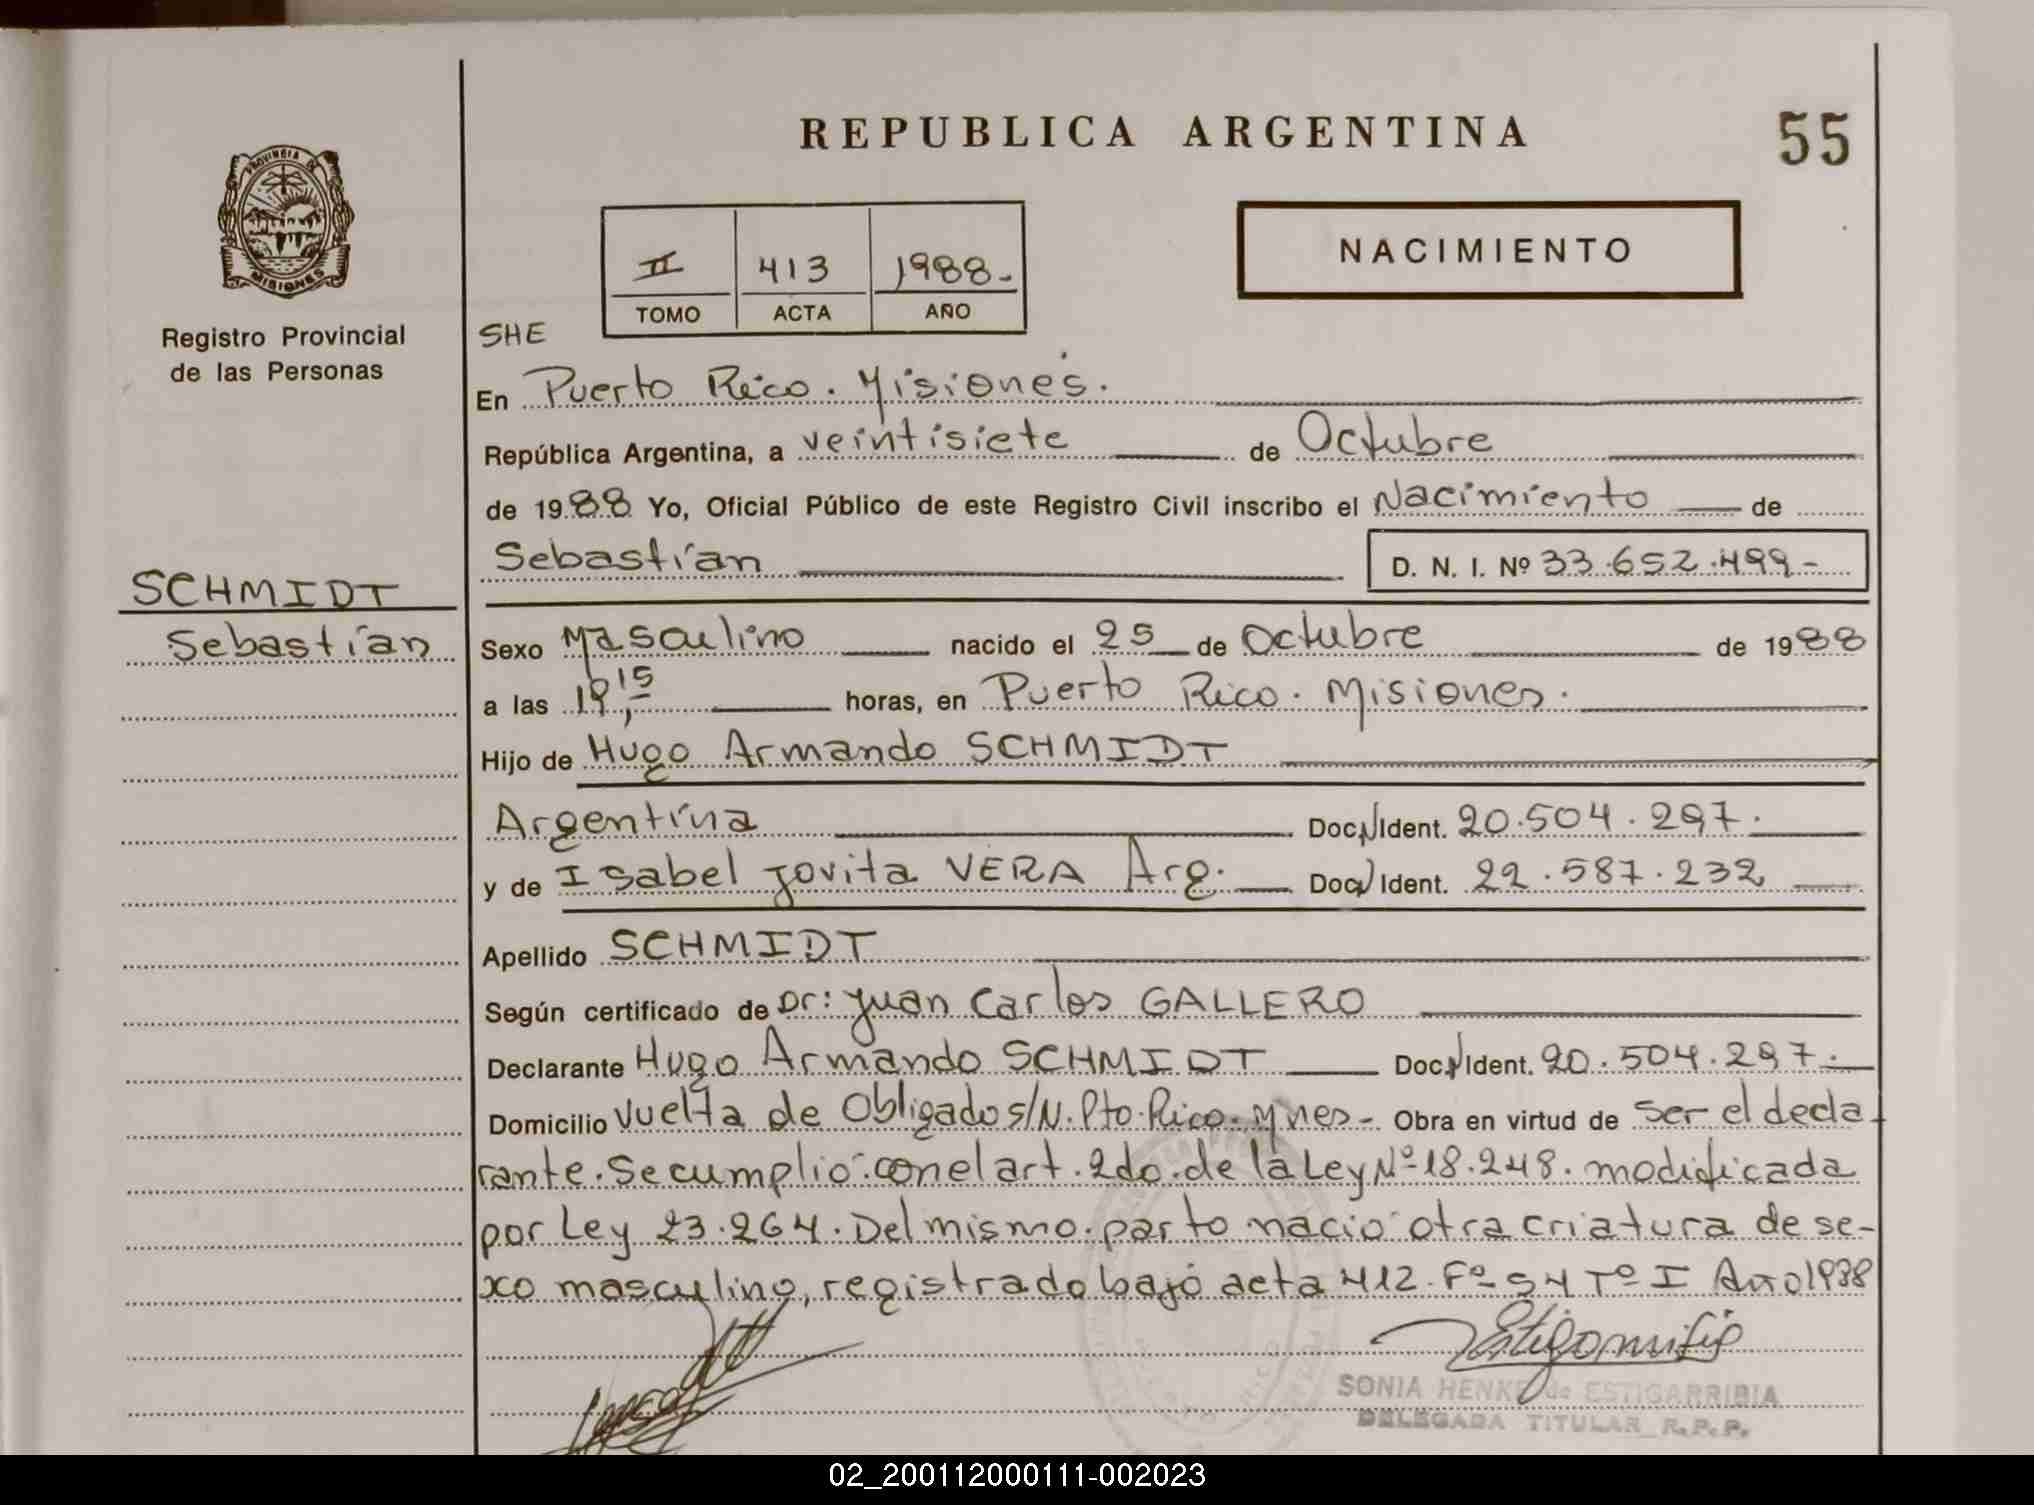 REPUBLICA ARGENTINA
55
PROVINCIA DE
MISIONES
Registro Provincial
de las Personas
II 413 1988-
TOMO ACTA AÑO
NACIMIENTO
SHE
En Puerto Rico. Misiones.
República Argentina, a veintisiete de Octubre
de 1988 Yo, Oficial Público de este Registro Civil inscribo el Nacimiento de
Sebastían D. N. I. Nº 33.652.499-
SCHMIDT
Sebastían
Sexo Masculino nacido el 25 de Octubre de 1988
a las 19,15 horas, en Puerto Rico. Misiones.
Hijo de Hugo Armando SCHMIDT
Argentina Doc. Ident. 20.504.297.
y de Isabel Jovita VERA Arg. Doc. Ident. 22.587.232
Apellido SCHMIDT
Según certificado de Dr: Juan Carlos GALLERO
Declarante Hugo Armando SCHMIDT Doc. Ident. 20.504.297.
Domicilio Vuelta de Obligado S/N. Pto. Rico. Mnes- Obra en virtud de ser el decla-
rante. Se cumplió con el art. 2do. de la Ley Nº 18.248. modificada
por Ley 23.264. Del mismo parto nació otra criatura de se-
xo masculino, registrado bajo acta 412. Fº 54 Tº I Año 1988
SONIA HENKE de ESTIGARRIBIA
DELEGADA TITULAR R.P.P.
02_200112000111-002023